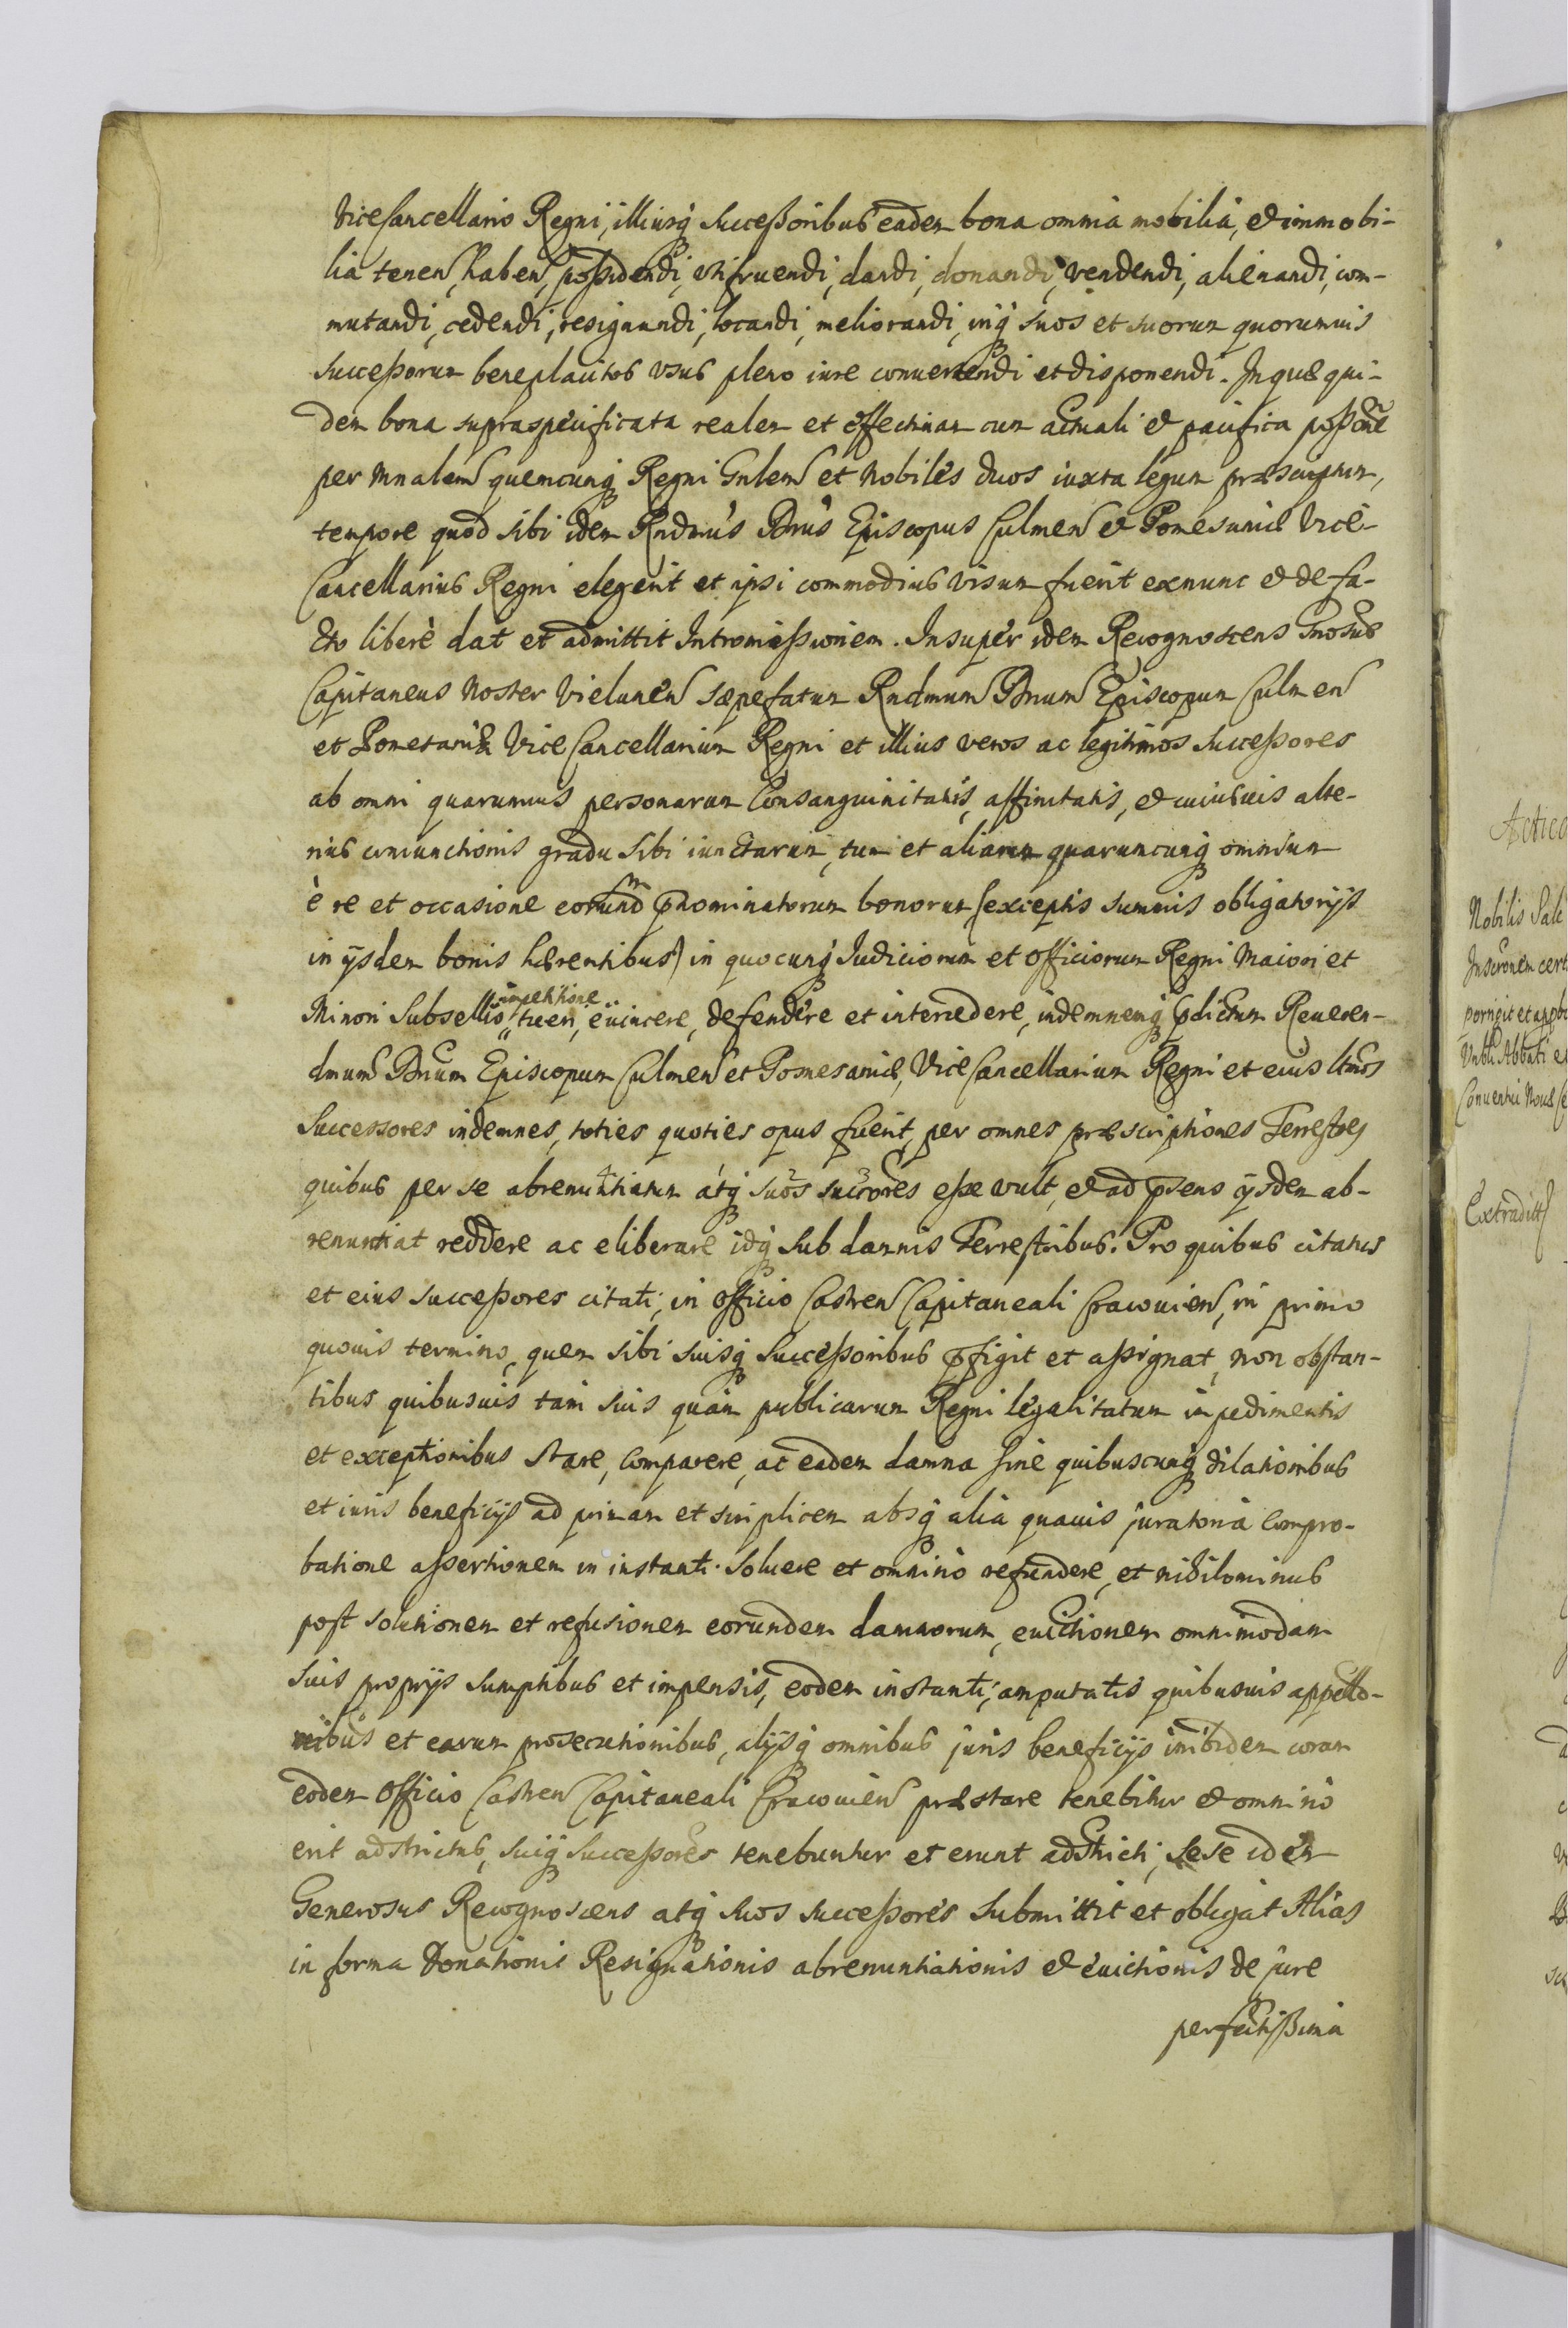 ViceCancellario Regni, illiusq Successoribus eadem bona omnia mobilia, et immobi-
lia tenen, haben, possidendi, utifruendi, dandi, donandi, vendendi, alienandi, com-
mutandi, cedendi, resignandi, locandi, meliorandi, inq suos et suorum quorumvis
successorum beneplacitos usus pleno iure convertendi et disponendi. In quæ qui-
dem bona supraspecificata realem et effectivam cum actuali et pacifica possone
per Mnalem quemcunq Regni Gnlem et Nobiles duos iuxta legum præscriptum,
tempore quod sibi idem Rndmus Dnus Episcopus Culmen et Pomesaniæ Vice-
Cancellarius Regni elegerit et ipsi commodius visum fuerit exnunc et de fa-
cto liberè dat et admittit Intromissionem. Insuper idem Recognoscens Gnosus
Capitaneus Noster Vielunen sæpefatum Rndmum Dnum Episcopum Culmen
et Pomesaniæ ViceCancellarium Regni et illius veros ac legitimos Successores
ab omni quarumvis personarum Consanguinitatis, affinitatis, et cuiusvis alte-
rius coniunctionis gradu sibi iunctarum, tum et aliarum quarumcunq omnium
è re et occasione eorund pnominatorum bonorum (exceptis summis obligatorijs
in ijsdem bonis hærentibus) in quocunq Iudiciorum et Officiorum Regni Maiori et
impetitione
Minori Subsellio tueri, evincere, defendere et intercedere, indemnemq pdictum Reveren-
dmum Dnum Episcopum Culmen et Pomesaniæ, ViceCancellarium Regni et eius ltmos
Successores indemnes, toties quoties opus fuerit, per omnes præscriptiones Terrestres
quibus per se abrenuntiatum atq suos succores esse vult, et ad psens ijsdem ab-
renuntiat reddere ac eliberare idq sub damnis Terrestribus. Pro quibus citatus
et eius successores citati, in Officio Castren Capitaneali Cracovien, in primo
quovis termino, quem sibi suisq Successoribus pfigit et assignat, non obstan-
tibus quibusvis tam suis quam publicarum Regni legalitatum impedimentis
et exceptionibus stare, comparere, ac eadem damna sine quibuscunq dilationibus
et iuris beneficijs ad primam et simplicem absq alia quavis juratoria compro-
batione assertionem in instanti solvere et omnino refundere, et nihilominus
post solutionem et refusionem eorundem damnorum, evictionem omnimodam
suis proprijs sumptibus et impensis, eodem instanti, amputatis quibusvis appellao-
nibus et earum prosecutionibus, alijsq omnibus juris beneficijs inibidem coram
eodem Officio Castren Capitaneali Cracovien præstare tenebitur et omnino
erit adstrictus, suiq Successores tenebuntur et erunt adstricti, sese idem
Generosus Recognoscens atq suos successores submittit et obligat Alias
in forma Donationis Resignationis abrenuntiationis et evictionis de jure
perfectissima
Nobilis
porrigit et
Abbati
Conventui